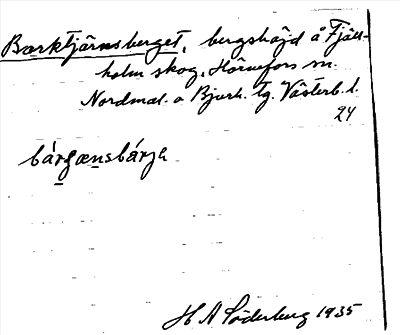 Barktjärnsberget, bergshöjd å Fjäll-
holm skog, Hörnefors sn.
Nordmal. o Bjurh. tg. Västerb. l.
24
bárʃænsbárjɩ
H A Söderberg 1935